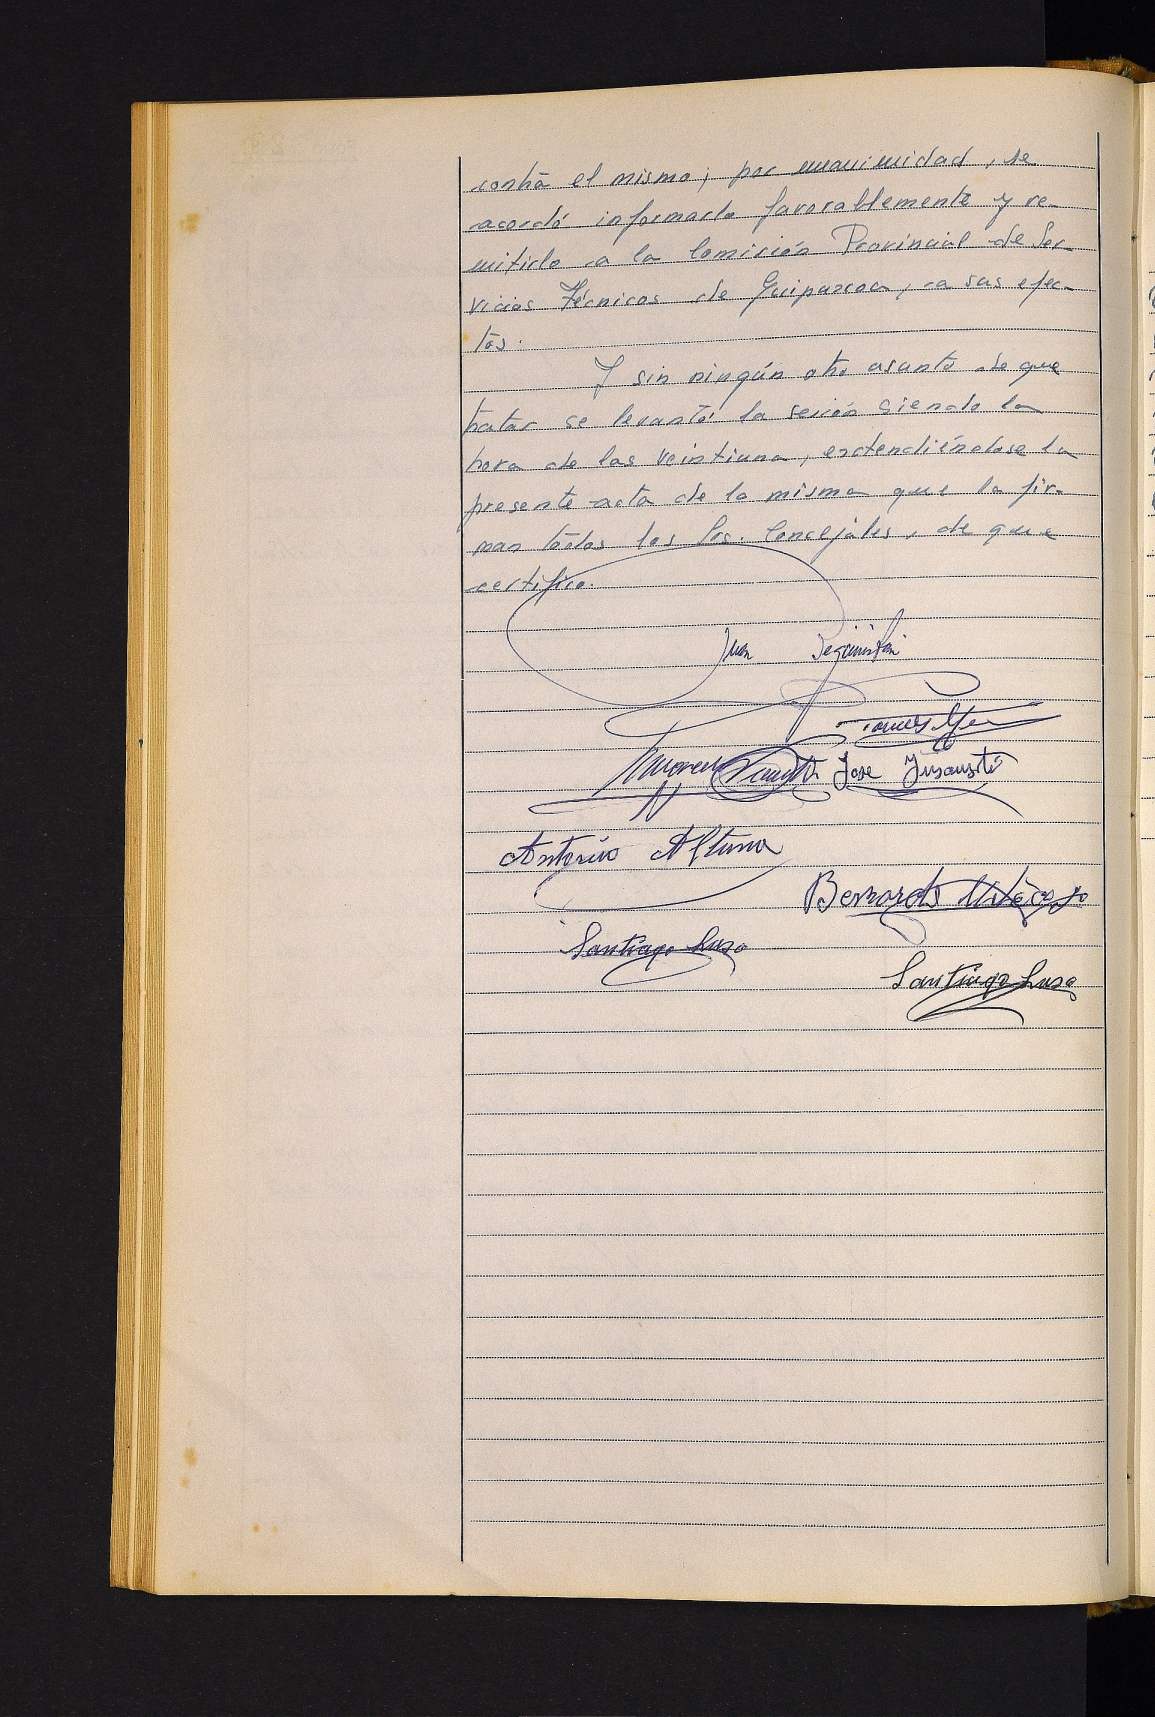 contra el mismo; por unanimidad, se
acordó informarlo favorablemente y re-
mitirlo a la Comisión Provincial de Ser-
vicios Técnicos de Guipuzcoa, a sus efec-
tos.
Y sin ningún otro asunto de que
tratar se levantó la sesión siendo la
hora de las veintiuna, extendiéndose la
presente acta de la misma que la fir-
man todos los Srs. Concejales, de que
certifico.
Juan
Jose
Antonio Altuna
Bernardo
Santiago Luso
Santiago Luso